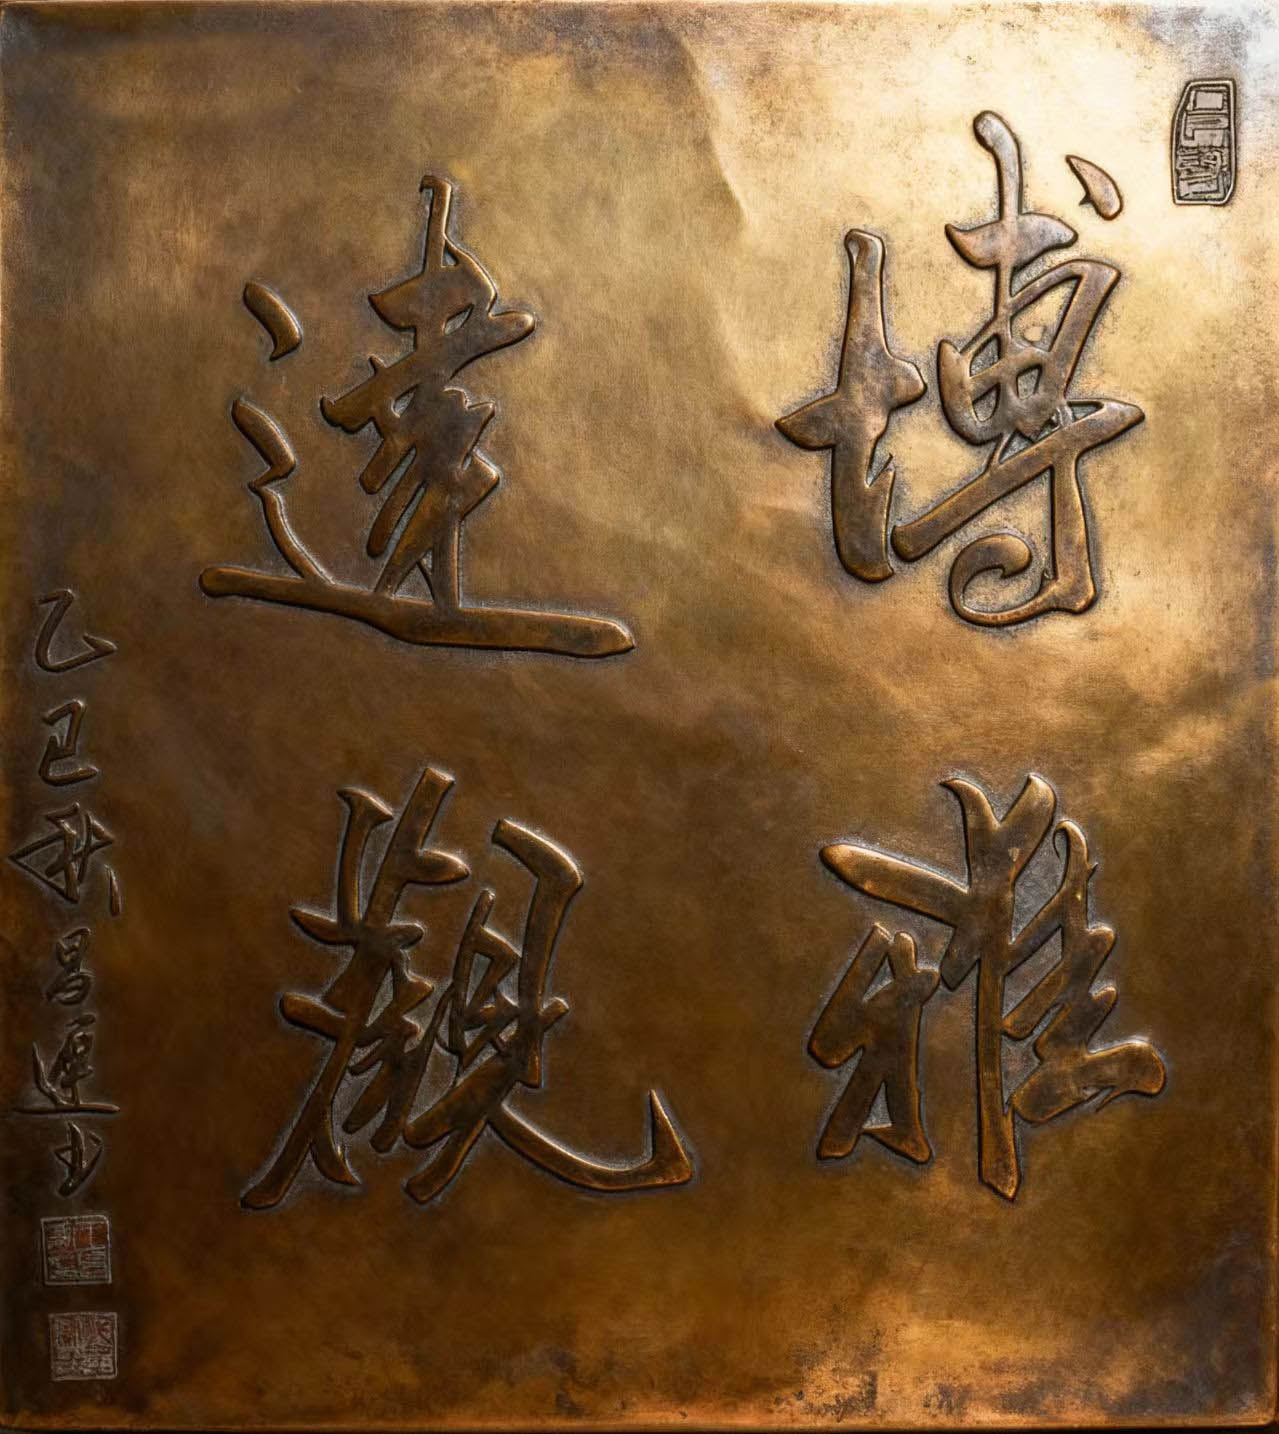 博雅
達觀
乙巳秋昌運书